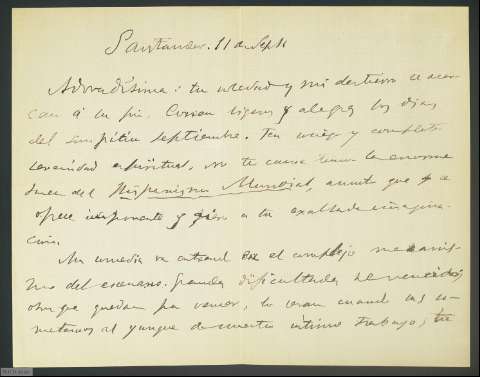 Santander. 11 de Sept.
Adoradísima: tu soledad y mi destierro se acer-
can á su fin. Corran ligeros y alegres los días
del simpático septiembre. Ten y completa
serenidad espiritual, no te cause temor la enorme
tarea del Hispanismo Mundial, asunto que se
ofrece imponente y a tu exaltada imagina-
ción.
Mi comedia va entrando en el complejo mecanis-
mo del escenario. Grandes dificultades he vencido,
otras que quedan por vencer, lo serán cuando las so-
metamos al yunque de nuestro íntimo trabajo; tu